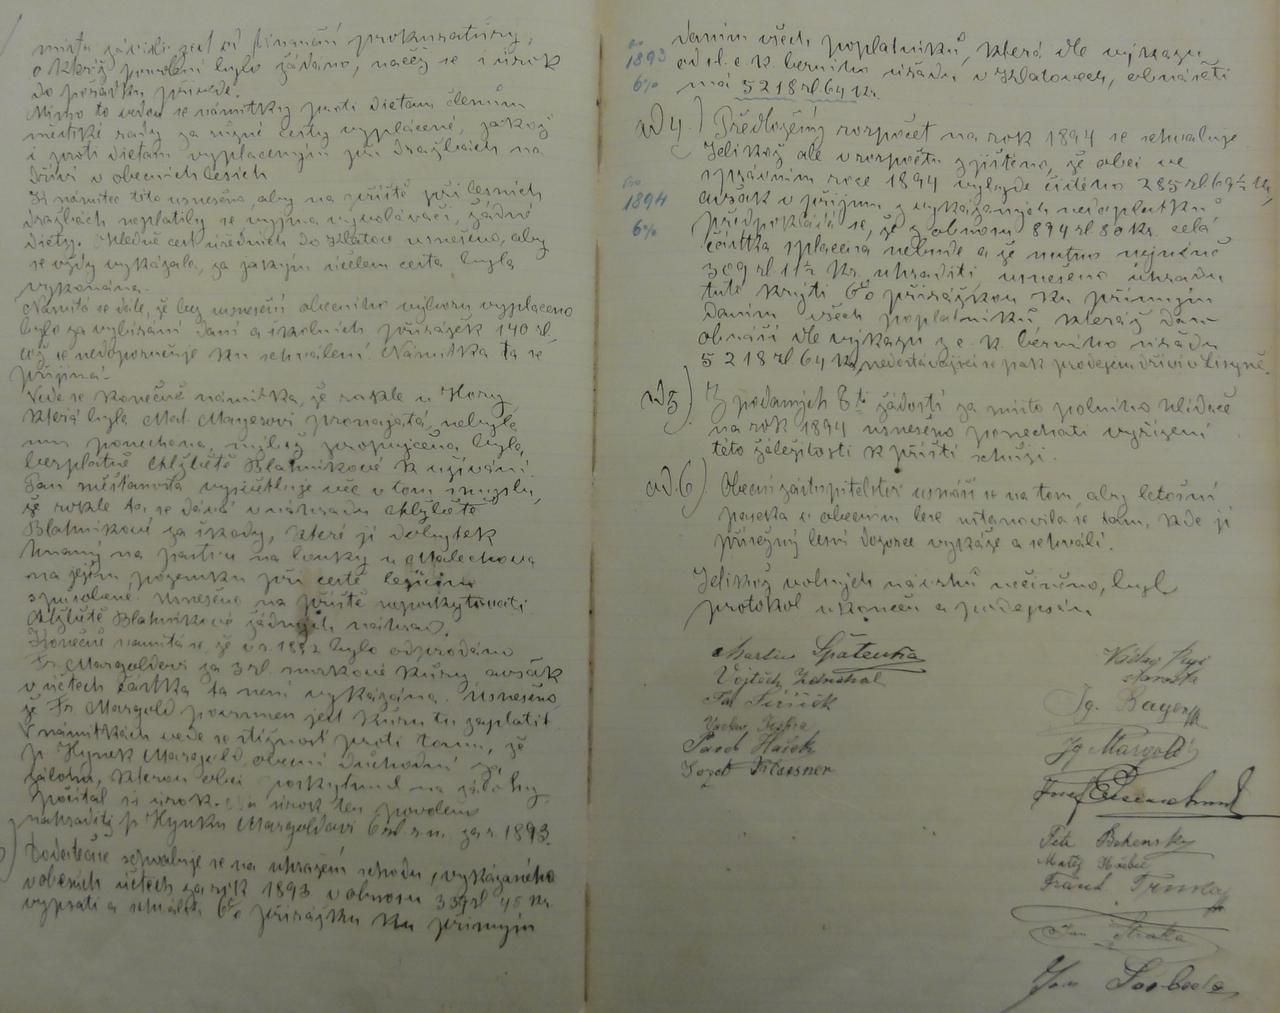 o kteréž povolení bylo žádáno, načež se i úrok
do pořádku přivede.
Mimo to vedou se námitky proti dietám členům
městské rady za různé cesty vyplácené, jakož
i proti dietám vyplaceným při dražbách na
dříví v obecních lesích
K námitce této usneseno, aby na příště při lesních
dražbách neplatily se vyjma vyvolávači, žádné
diety. Hledně cest úředních do Klatov usneseno, aby
se vždy vykázalo, za jakým účelem cesta byla
vykonána.
Namítá se dále, že bez usnesení obecního výboru vyplaceno
bylo za vybírání daní a školních přirážek 140 zl,
což se nedoporučuje ku schválení. Námitka ta se
přijímá.
Vede se konečně námitka, že rokle u Hory,
která byla Mat. Mayerovi pronajatá, nebyla
mu ponechána, nýbrž propůjčena byla
bezplatně Alžbětě Blatníkové k užívání.
Pan starosta vysvětluje věc v tom smyslu,
že rokle ta se dává v náhradu Alžbětě
Blatníkové za škody, které jí dobytek
hnaný na pastvu na louky u Malechova
na jejím pozemku při cestě ležícím
způsobuje. Usneseno na příště neposkytovati
Alžbětě Blatníkové žádných náhrad.
Konečně namítá se, že v r. 1892 bylo odprodáno
Fr. Margoldovi za 3 zl. smrkové kůry avšak
v účtech částka ta není vykázána. Usneseno,
že Fr. Margold povinnen jest kůru tu zaplatit
V námitkách vede se stížnost proti tomu, že
p. Hynek Margold, obecní důchodní za
zálohu, kterou obci poskytnul na
počítal si úrok. úrok ten povoleno
nahraditi p. Hynku Margoldovi r. m. za r. 1893.
Dodatečně schvaluje se na uhražení schodku, vykázaného
v obecních účtech za rok 1893 v obnosu 45 kr.
vypsati a schváliti 6% přirážku ku přímým
pro
1893
6%
daním všech poplatníků, která dle výkazu
od sl. c. k. berního úřadu v Klatovech, obnášeti
má 5218 zl 64 kr.
ad 4.) Předložený rozpočet na rok 1894 se schvaluje
Jelikož ale v rozpočtu zjištěno, že obci ve
správním roce 1894 vybyde čistého 285 zl 69½ kr,
pro
1894
6%
avšak v příjmu z vykázaných nedoplatků
předpokládá se, že z obnosu 894 zl 80 kr. celá
částka splacena nebude a že nutno nejméně
309 zl 11½ kr. uhraditi, usneseno úhradu
tuto krýti 6% přirážkou ku přímým
daním všech poplatníků, kteráž daň
obnáší dle výkazu z c. k. berního úřadu
5218 zl 64 kr, nedostávající se pak prodejem dříví v Lisyně.
ad 5) Z podaných 8ti žádostí za místo polního hlídače
na rok 1894 usneseno ponechati vyřízení
této záležitosti k příští schůzi.
ad. 6) Obecní zastupitelství usnáší se na tom, aby letošní
paseka v obecním lese ustanovila se tam, kde ji
příslušný lesní dozorce vykáže a schválí.
Jelikož volných návrhů nečiněno, byl
protokol ukončen a podepsán
Martin Špatenka
Vojtěch Zdrůhal
Jan Šiříček
Pavel Hašek
Josef Klassner
starosta
Ig. Bayer
Ig Margold
Petr Bohensky
Matěj Hrabě
Frant Trnka
Jan Straka
Jan Svoboda